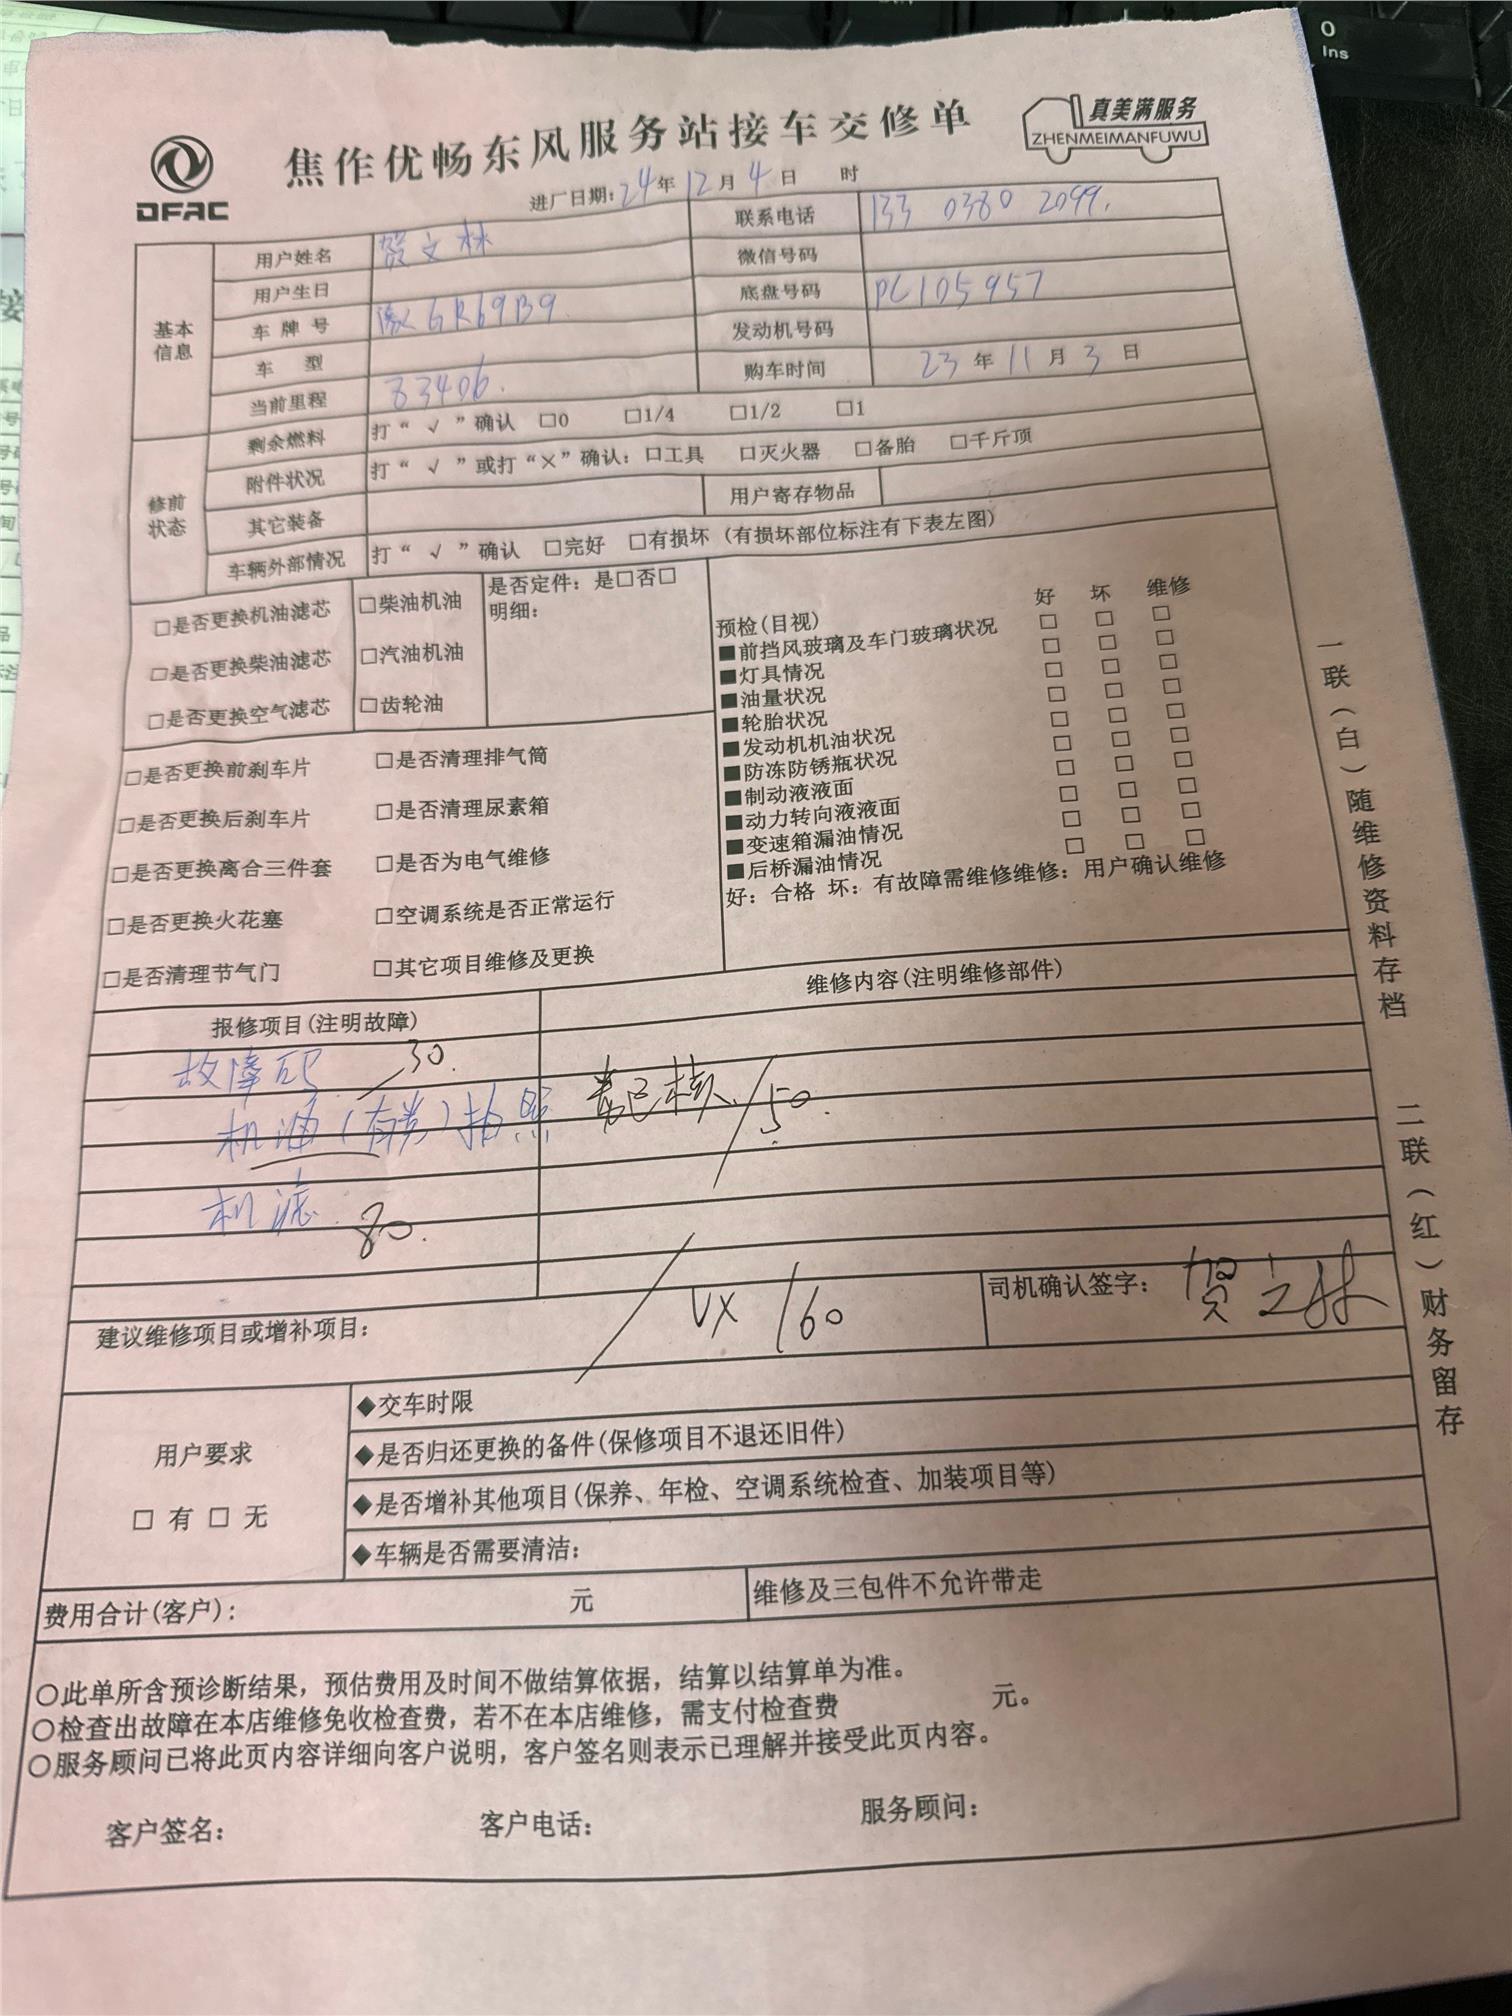 0
Ins
DFAC
焦作优畅东风服务站接车交修单
真美满服务
ZHENMEIMANFUWU
进厂日期: 24年 12月 4日 时
基本信息
用户姓名 贺文林 联系电话 133 0380 2099.
用户生日 微信号码
车牌号 GR69B9 底盘号码 PC105957
车型 发动机号码
当前里程 83406. 购车时间 23年 11月 3日
修前状态
剩余燃料 打“√”确认 □0 □1/4 □1/2 □1
附件状况 打“√”或打“×”确认: □工具 □灭火器 □备胎 □千斤顶
其它装备 用户寄存物品
车辆外部情况 打“√”确认 □完好 □有损坏 (有损坏部位标注有下表左图)
□是否更换机油滤芯 □柴油机油 是否定件: 是□否□
明细:
□是否更换柴油滤芯 □汽油机油
□是否更换空气滤芯 □齿轮油
□是否更换前刹车片 □是否清理排气筒
□是否更换后刹车片 □是否清理尿素箱
□是否更换离合三件套 □是否为电气维修
□是否更换火花塞 □空调系统是否正常运行
□是否清理节气门 □其它项目维修及更换
预检(目视) 好 坏 维修
■前挡风玻璃及车门玻璃状况 □ □ □
■灯具情况 □ □ □
■油量状况 □ □ □
■轮胎状况 □ □ □
■发动机机油状况 □ □ □
■防冻防锈瓶状况 □ □ □
■制动液液面 □ □ □
■动力转向液液面 □ □ □
■变速箱漏油情况 □ □ □
■后桥漏油情况 □ □ □
好: 合格 坏: 有故障需维修维修: 用户确认维修
报修项目(注明故障) 维修内容(注明维修部件)
故障码 30.
机油(有券)拍照 券已核. 50.
机滤. 80.
建议维修项目或增补项目: VX 160
司机确认签字: 贺文林
用户要求
□ 有 □ 无
◆交车时限
◆是否归还更换的备件(保修项目不退还旧件)
◆是否增补其他项目(保养、年检、空调系统检查、加装项目等)
◆车辆是否需要清洁:
费用合计(客户): 元 维修及三包件不允许带走
○此单所含预诊断结果, 预估费用及时间不做结算依据, 结算以结算单为准。
○检查出故障在本店维修免收检查费, 若不在本店维修, 需支付检查费 元。
○服务顾问已将此页内容详细向客户说明, 客户签名则表示已理解并接受此页内容。
客户签名: 客户电话: 服务顾问:
一联(白)随维修资料存档
二联(红)财务留存